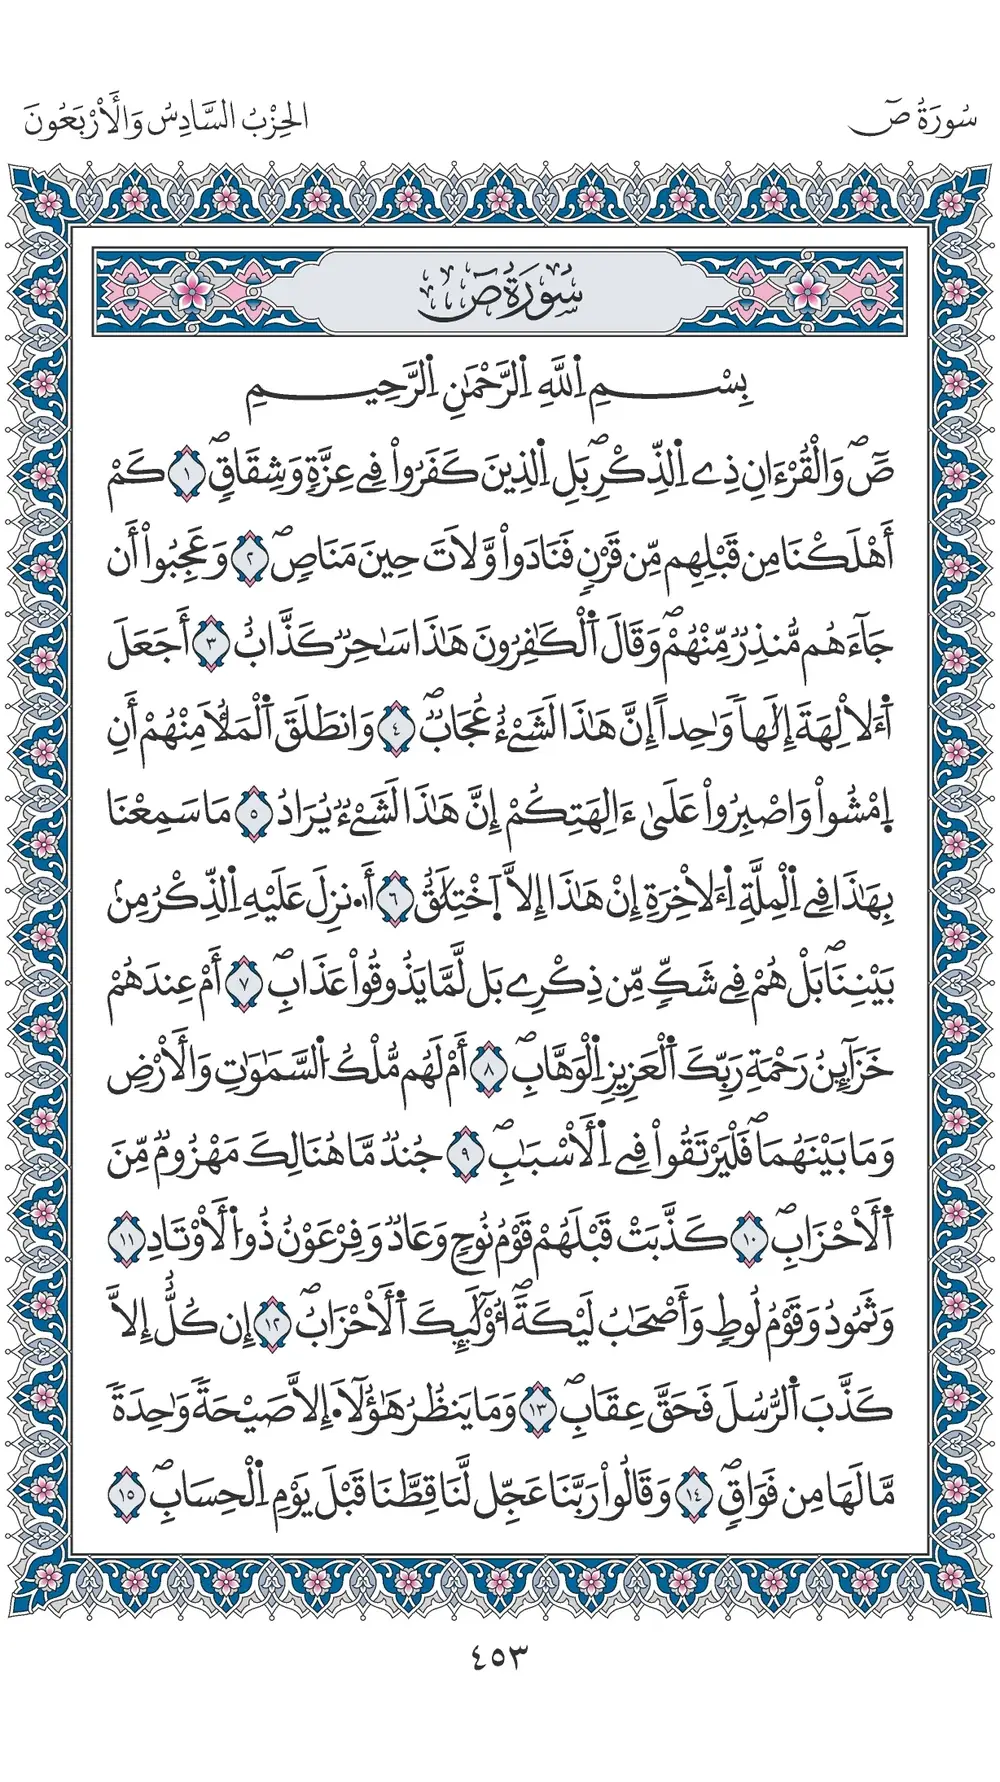 سُورَةُ صٓ
الحِزْبُ السَّادِسُ وَالْأَرْبَعُونَ
سُورَةُ صٓ
بِسْمِ اِ۬للَّهِ اِ۬لرَّحْمَٰنِ اِ۬لرَّحِيمِ
صَٓۖ وَالْقُرْءَانِ ذِے اِ۬لذِّكْرِۖ بَلِ اِ۬لذِينَ كَفَرُواْ فِے عِزَّةٖ وَشِقَاقٖۖ ١ كَمْ
أَهْلَكْنَا مِن قَبْلِهِم مِّن قَرْنٖ فَنَادَواْ وَّلَاتَ حِينَ مَنَاصٖۖ ٢ وَعَجِبُواْ أَن
جَآءَهُم مُّنذِرٞ مِّنْهُمْۖ وَقَالَ اَ۬لْكَٰفِرُونَ هَٰذَا سَٰحِرٞ كَذَّابٌ ٣ أَجَعَلَ
اَ۬لَالِهَةَ إِلَٰهاٗ وَٰحِداً إِنَّ هَٰذَا لَشَےْءٌ عُجَابٞۖ ٤ وَانطَلَقَ اَ۬لْمَلَأُ مِنْهُمْ أَنِ
اِ۪مْشُواْ وَاصْبِرُواْ عَلَىٰ ءَالِهَتِكُمْ إِنَّ هَٰذَا لَشَےْءٞ يُرَادُ ٥ مَا سَمِعْنَا
بِهَٰذَا فِے اِ۬لْمِلَّةِ اِ۬لَاخِرَةِ إِنْ هَٰذَا إِلَّا اَ۪خْتِلَٰقٌ ٦ أَا۟نزِلَ عَلَيْهِ اِ۬لذِّكْرُ مِنۢ
بَيْنِنَاۖ بَلْ هُمْ فِے شَكّٖ مِّن ذِكْرِے بَل لَّمَّا يَذُوقُواْ عَذَابِۖ ٧ أَمْ عِندَهُمْ
خَزَآئِنُ رَحْمَةِ رَبِّكَ اَ۬لْعَزِيزِ اِ۬لْوَهَّابِۖ ٨ أَمْ لَهُم مُّلْكُ اُ۬لسَّمَٰوَٰتِ وَالْأَرْضِ
وَمَا بَيْنَهُمَاۖ فَلْيَرْتَقُواْ فِے اِ۬لْأَسْبَٰبِۖ ٩ جُندٞ مَّا هُنَالِكَ مَهْزُومٞ مِّنَ
اَ۬لْأَحْزَابِۖ ١٠ كَذَّبَتْ قَبْلَهُمْ قَوْمُ نُوحٖ وَعَادٞ وَفِرْعَوْنُ ذُو اُ۬لْأَوْتَادِ ١١
وَثَمُودُ وَقَوْمُ لُوطٖ وَأَصْحَٰبُ لَيْكَةَۖ أُوْلَٰٓئِكَ اَ۬لْأَحْزَابُۖ ١٢ إِن كُلٌّ إِلَّا
كَذَّبَ اَ۬لرُّسُلَ فَحَقَّ عِقَابِۖ ١٣ وَمَا يَنظُرُ هَٰؤُلَآ إِلَّا صَيْحَةٗ وَٰحِدَةٗ
مَّا لَهَا مِن فَوَاقٖۖ ١٤ وَقَالُواْ رَبَّنَا عَجِّل لَّنَا قِطَّنَا قَبْلَ يَوْمِ اِ۬لْحِسَابِۖ ١٥
٤٥٣